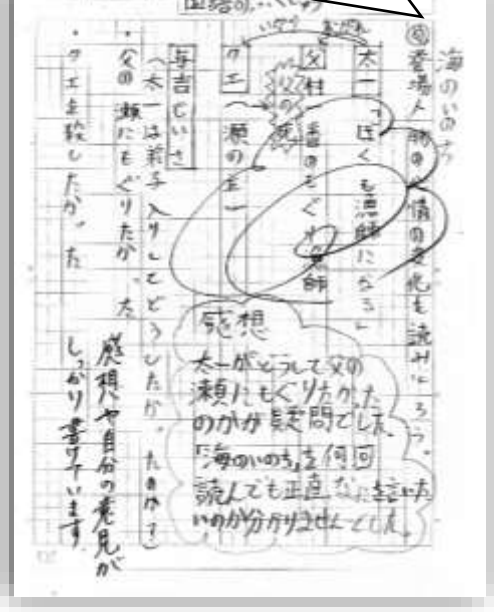 国語の
海のいのち
め 登場人物の心情の変化を読みとろう。
太一「ぼくも漁師になる」
父 村一番のもぐり漁師
父の死
クエ 瀬の主
与吉じいさ
(太一は弟子入りしてどうしたか。たのか?)
・父の瀬にもぐりたか た
・クエを殺したか。た
感想
太一がどうして父の
瀬にもぐりたかった
のかが疑問でした。
「海のいのち」を何回
読んでも正直なにを言いた
いのか分かりませんでした。
感想や自分の意見が
しっかり書けています